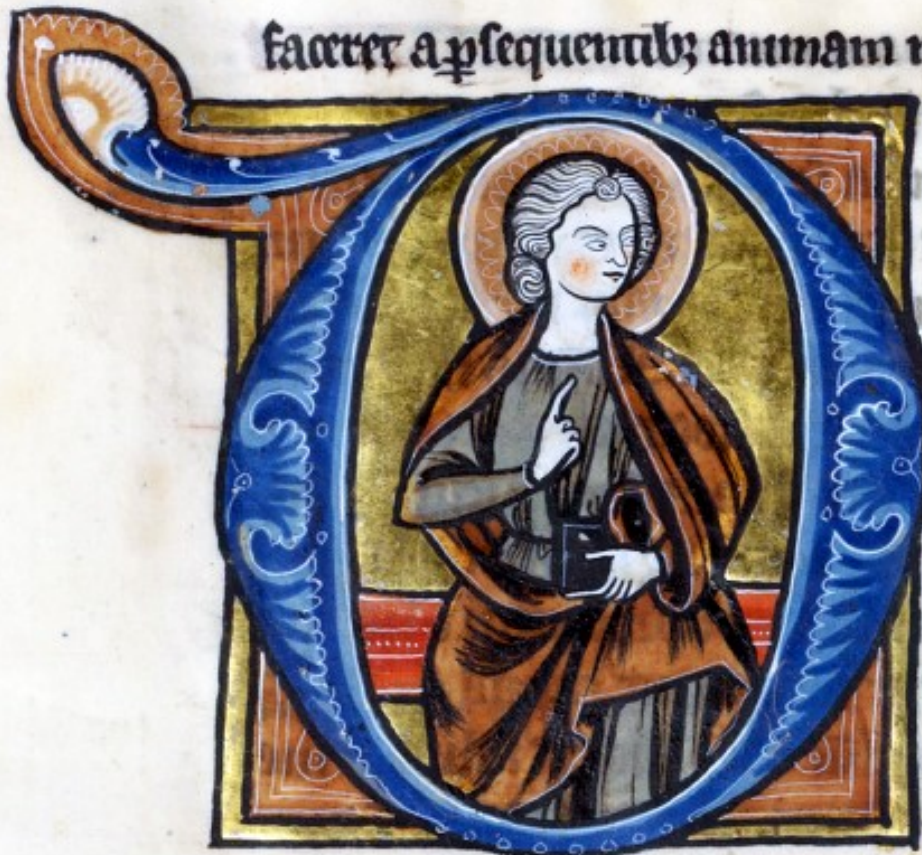 faceret a ꝑsequentibꝫ animam
D